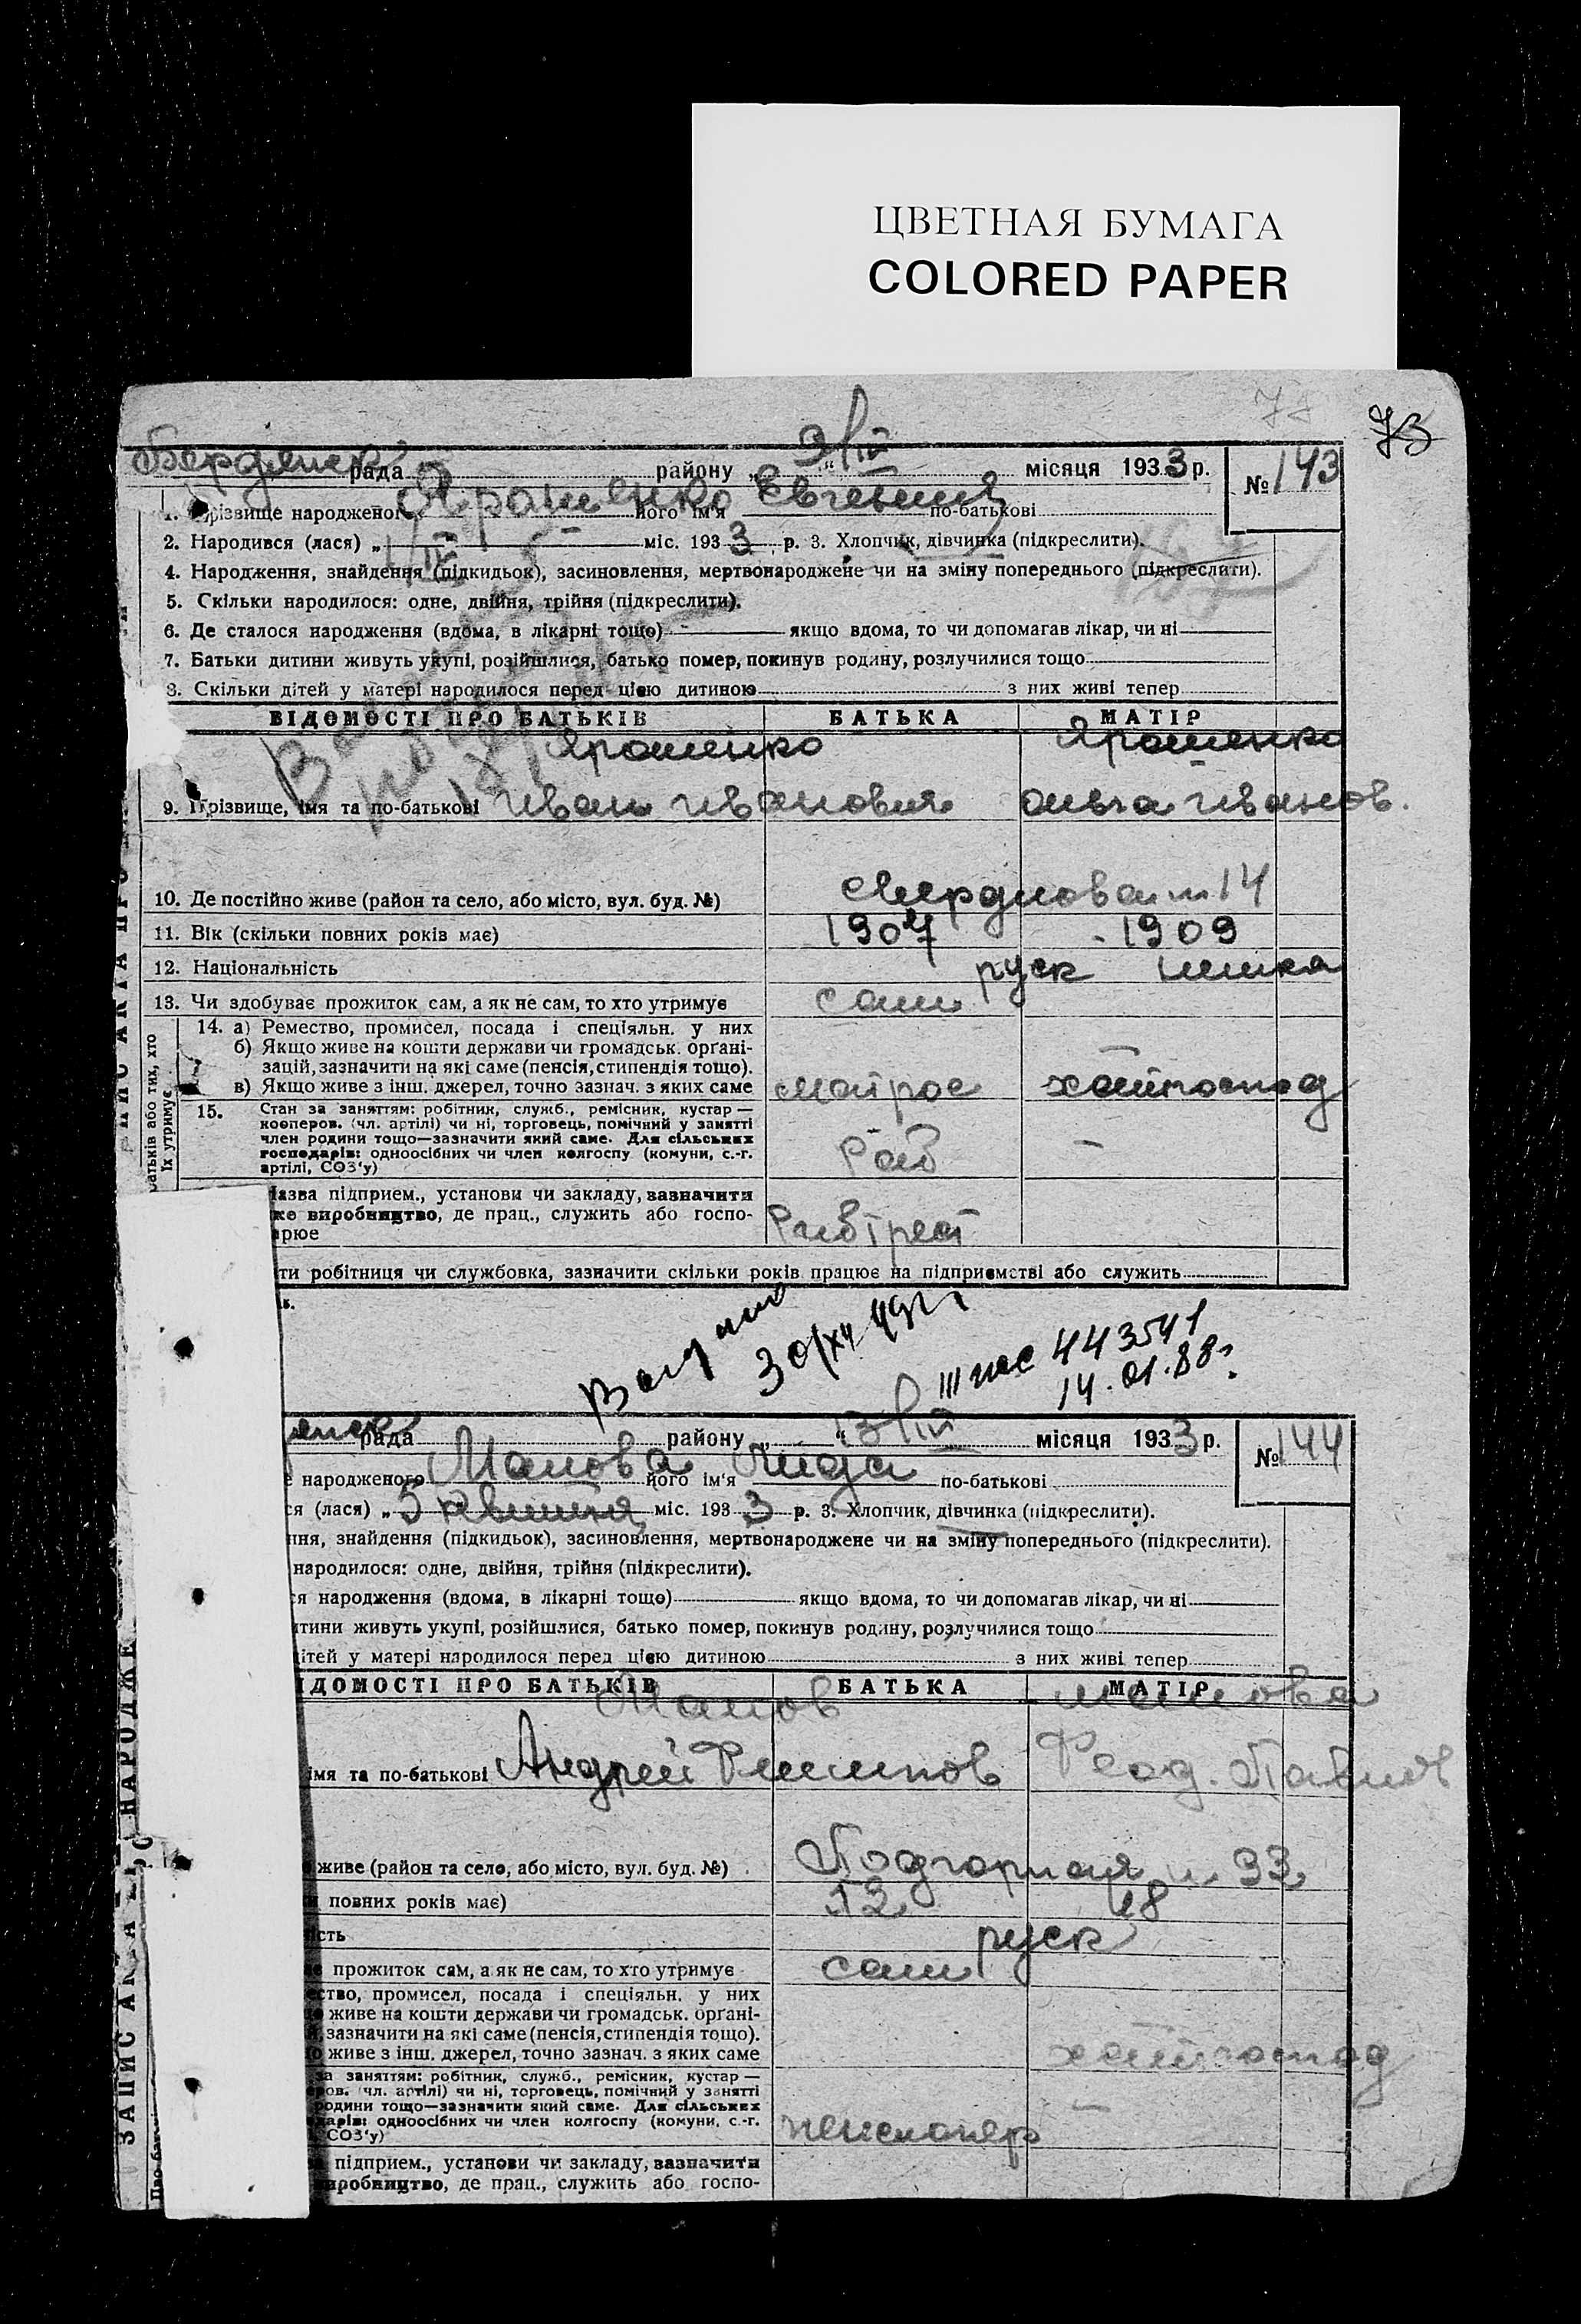 ЦВЕТНАЯ БУМАГА
COLORED PAPER
73
Бердянск рада району „ 9/IV “ місяця 1933 р. № 143
1. Прізвище народженого Ярошенко його ім'я Евгения по-батькові
2. Народився (лася) „ 1/IV міс. 1933 р. 3. Хлопчик, дівчинка (підкреслити).
4. Народження, знайдення (підкидьок), засиновлення, мертвонароджене чи на зміну попереднього (підкреслити).
5. Скільки народилося: одне, двійня, трійня (підкреслити).
6. Де сталося народження (вдома, в лікарні тощо) якщо вдома, то чи допомагав лікар, чи ні
7. Батьки дитини живуть укупі, розійшлися, батько помер, покинув родину, розлучилися тощо
8. Скільки дітей у матері народилося перед цією дитиною з них живі тепер
ВІДОМОСТІ ПРО БАТЬКІВ БАТЬКА МАТІР
Ярошенко Ярошенко
9. Прізвище, імя та по-батькові Иван Иванович Ольга Иванов.
10. Де постійно живе (район та село, або місто, вул. буд. №) Свердлова 14
11. Вік (скільки повних років має) 1907 1909
12. Національність руск
13. Чи здобуває прожиток сам, а як не сам, то хто утримує сам
14. а) Ремество, промисел, посада і спеціяльн. у них
б) Якщо живе на кошти держави чи громадськ. орґані-
зацій, зазначити на які саме (пенсія, стипендія тощо).
в) Якщо живе з інш. джерел, точно зазнач. з яких саме матрос хатгоспод
15. Стан за заняттям: робітник, служб., ремісник, кустар —
кооперов. (чл. артілі) чи ні, торговець, помічний у занятті
член родини тощо—зазначити який саме. Для сільських
господарів: одноосібних чи член колгоспу (комуни, с.-г.
артілі, СОЗ'у) Раб –
Назва підприєм., установи чи закладу, зазначити
ке виробництво, де прац., служить або госпо-
арює
ти робітниця чи службовка, зазначити скільки років працює на підприємстві або служить
Выдано
30/XII 49 г
III жс 443541
14.01.88г.
рада району „ “ 13/IV місяця 1933 р. № 144
народженого Манова його ім'я Лида по-батькові
ся (лася) „ 5 квітня міс. 1933 р. 3. Хлопчик, дівчинка (підкреслити).
ння, знайдення (підкидьок), засиновлення, мертвонароджене чи на зміну попереднього (підкреслити).
народилося: одне, двійня, трійня (підкреслити).
ся народження (вдома, в лікарні тощо) якщо вдома, то чи допомагав лікар, чи ні
итини живуть укупі, розійшлися, батько помер, покинув родину, розлучилися тощо
ітей у матері народилося перед цією дитиною з них живі тепер
ІДОМОСТІ ПРО БАТЬКІВ БАТЬКА МАТІР
Манов Манова
імя та по-батькові Андрей Филипов Феод. Павлов
живе (район та село, або місто, вул. буд. №) Подгорная 33
повних років має) 18
ість руск
прожиток сам, а як не сам, то хто утримує сам
ество, промисел, посада і спеціяльн. у них
живе на кошти держави чи громадськ. орґані-
зазначити на які саме (пенсія, стипендія тощо).
живе з інш. джерел, точно зазнач. з яких саме хатгоспод
за заняттям: робітник, служб., ремісник, кустар —
ров. (чл. артілі) чи ні, торговець, помічний у занятті
родини тощо—зазначити який саме. Для сільських
дарів: одноосібних чи член колгоспу (комуни, с.-г.
СОЗ'у) пенсионер –
підприєм., установи чи закладу, зазначити
иробництво, де прац., служить або госпо-